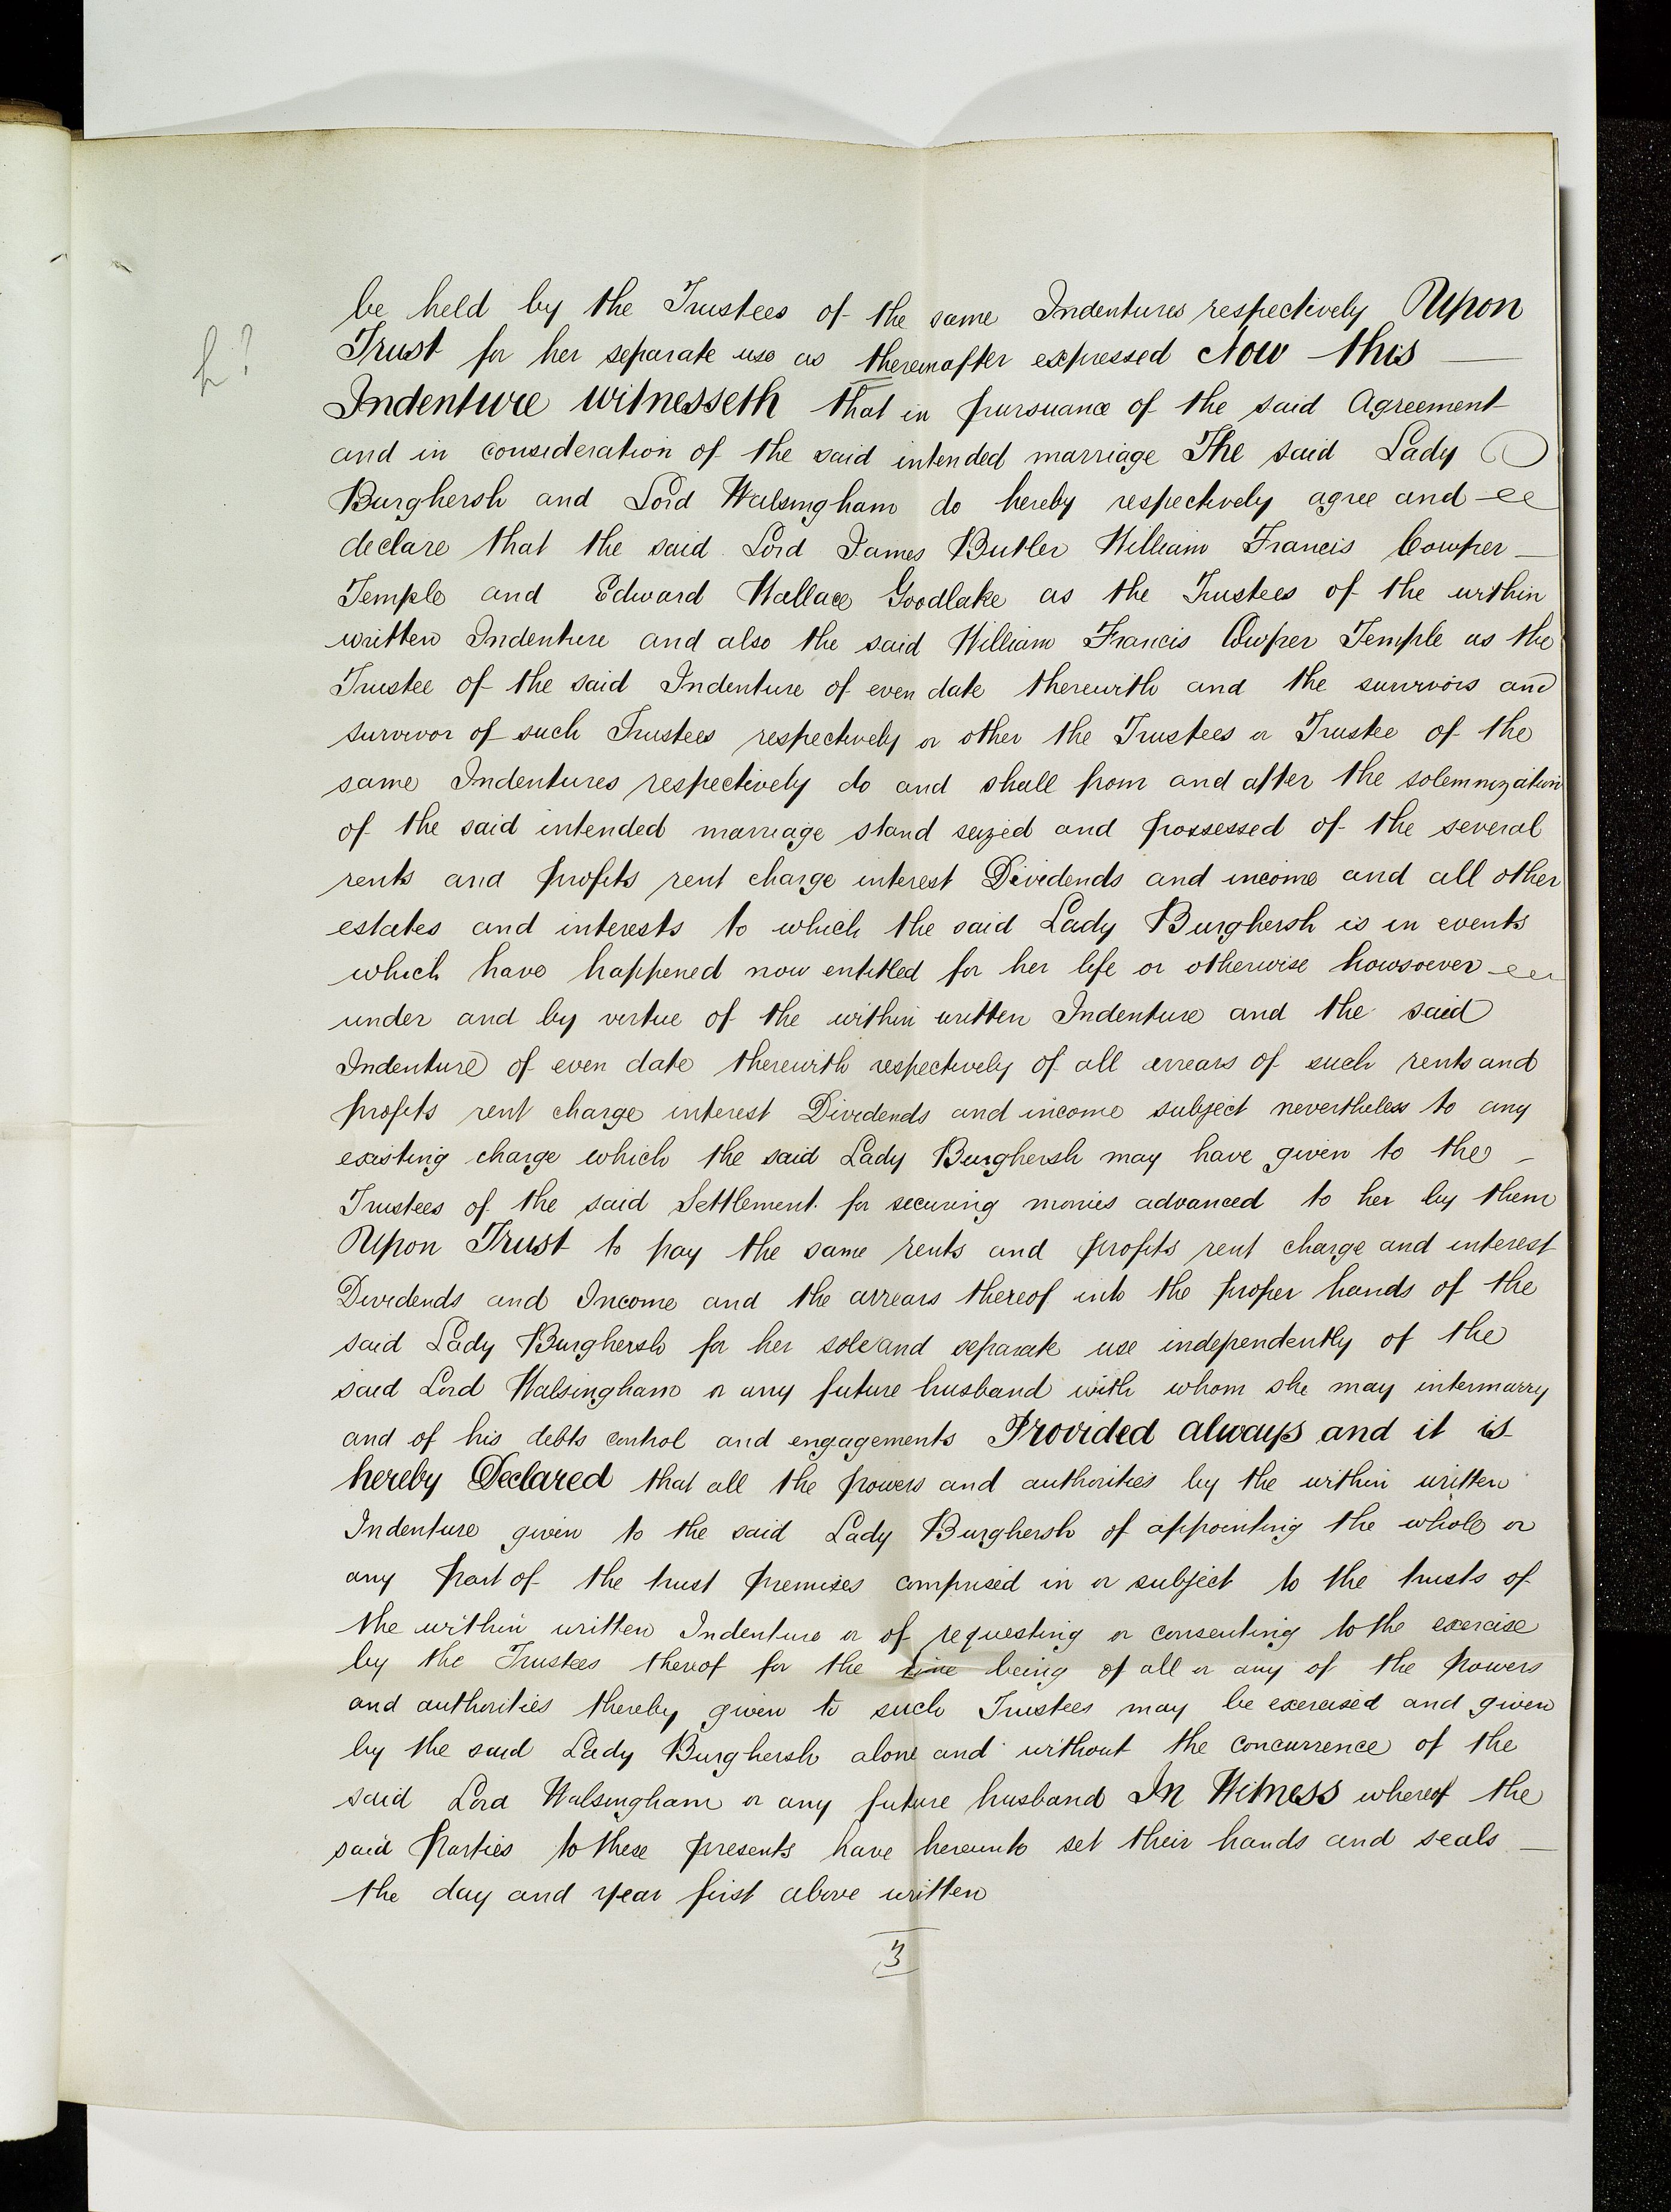 be held by the Trustees of the same Indentures respectively Upon
h?
Trust for her separate use as thereinafter expressed Now this
Indenture Witnesseth that in pursuance of the said Agreement
and in consideration of the said intended marriage The said Lady
Burghersh and Lord Walsingham do hereby respectively agree and
declare that the said Lord James Butler William Francis Cowper
Temple and Edward Wallace Goodlake as the Trustees of the within
written Indenture and also the said William Francis Cowper Temple as the
Trustee of the said Indenture of even date therewith and the survivors and
survivor of such Trustees respectively or other the Trustees or Trustee of the
same Indentures respectively do and shall from and after the solemnization
of the said intended marriage stand seized and possessed of the several
rents and profits rent charge interest Dividends and income and all other
estates and interests to which the said Lady Burghersh is in events
which have happened now entitled for her life or otherwise howsoever
under and by virtue of the within written Indenture and the said
Indenture of even date therewith respectively of all arrears of such rents and
profits rent charge interest Dividends and income subject nevertheless to any
existing charge which the said Lady Burghersh may have given to the
Trustees of the said Settlement for securing monies advanced to her by them
Upon Trust to pay the same rents and profits rent charge and interest
Dividends and Income and the arrears thereof into the proper hands of the
said Lady Burghersh for her sole and separate use independently of the
said Lord Walsingham or any future husband with whom she may intermarry
and of his debts control and engagements Provided always and it is
hereby Declared that all the powers and authorities by the within written
Indenture given to the said Lady Burghersh of appointing the whole or
any part of the trust premises comprised in or subject to the trusts of
the within written Indenture or of requesting or consenting to the exercise
by the Trustees thereof for the time being of all or any of the powers
and authorities thereby given to such Trustees may be exercised and given
by the said Lady Burghersh alone and without the concurrence of the
said Lord Walsingham or any future husband In Witness whereof the
said Parties to these presents have hereunto set their hands and seals
the day and year first above written
3